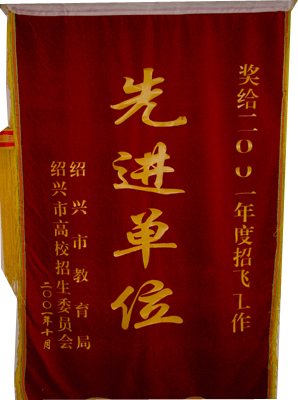 奖给二〇〇一年度招飞工作
先进单位
绍兴市教育局
绍兴市高校招生委员会
二〇〇一年十月